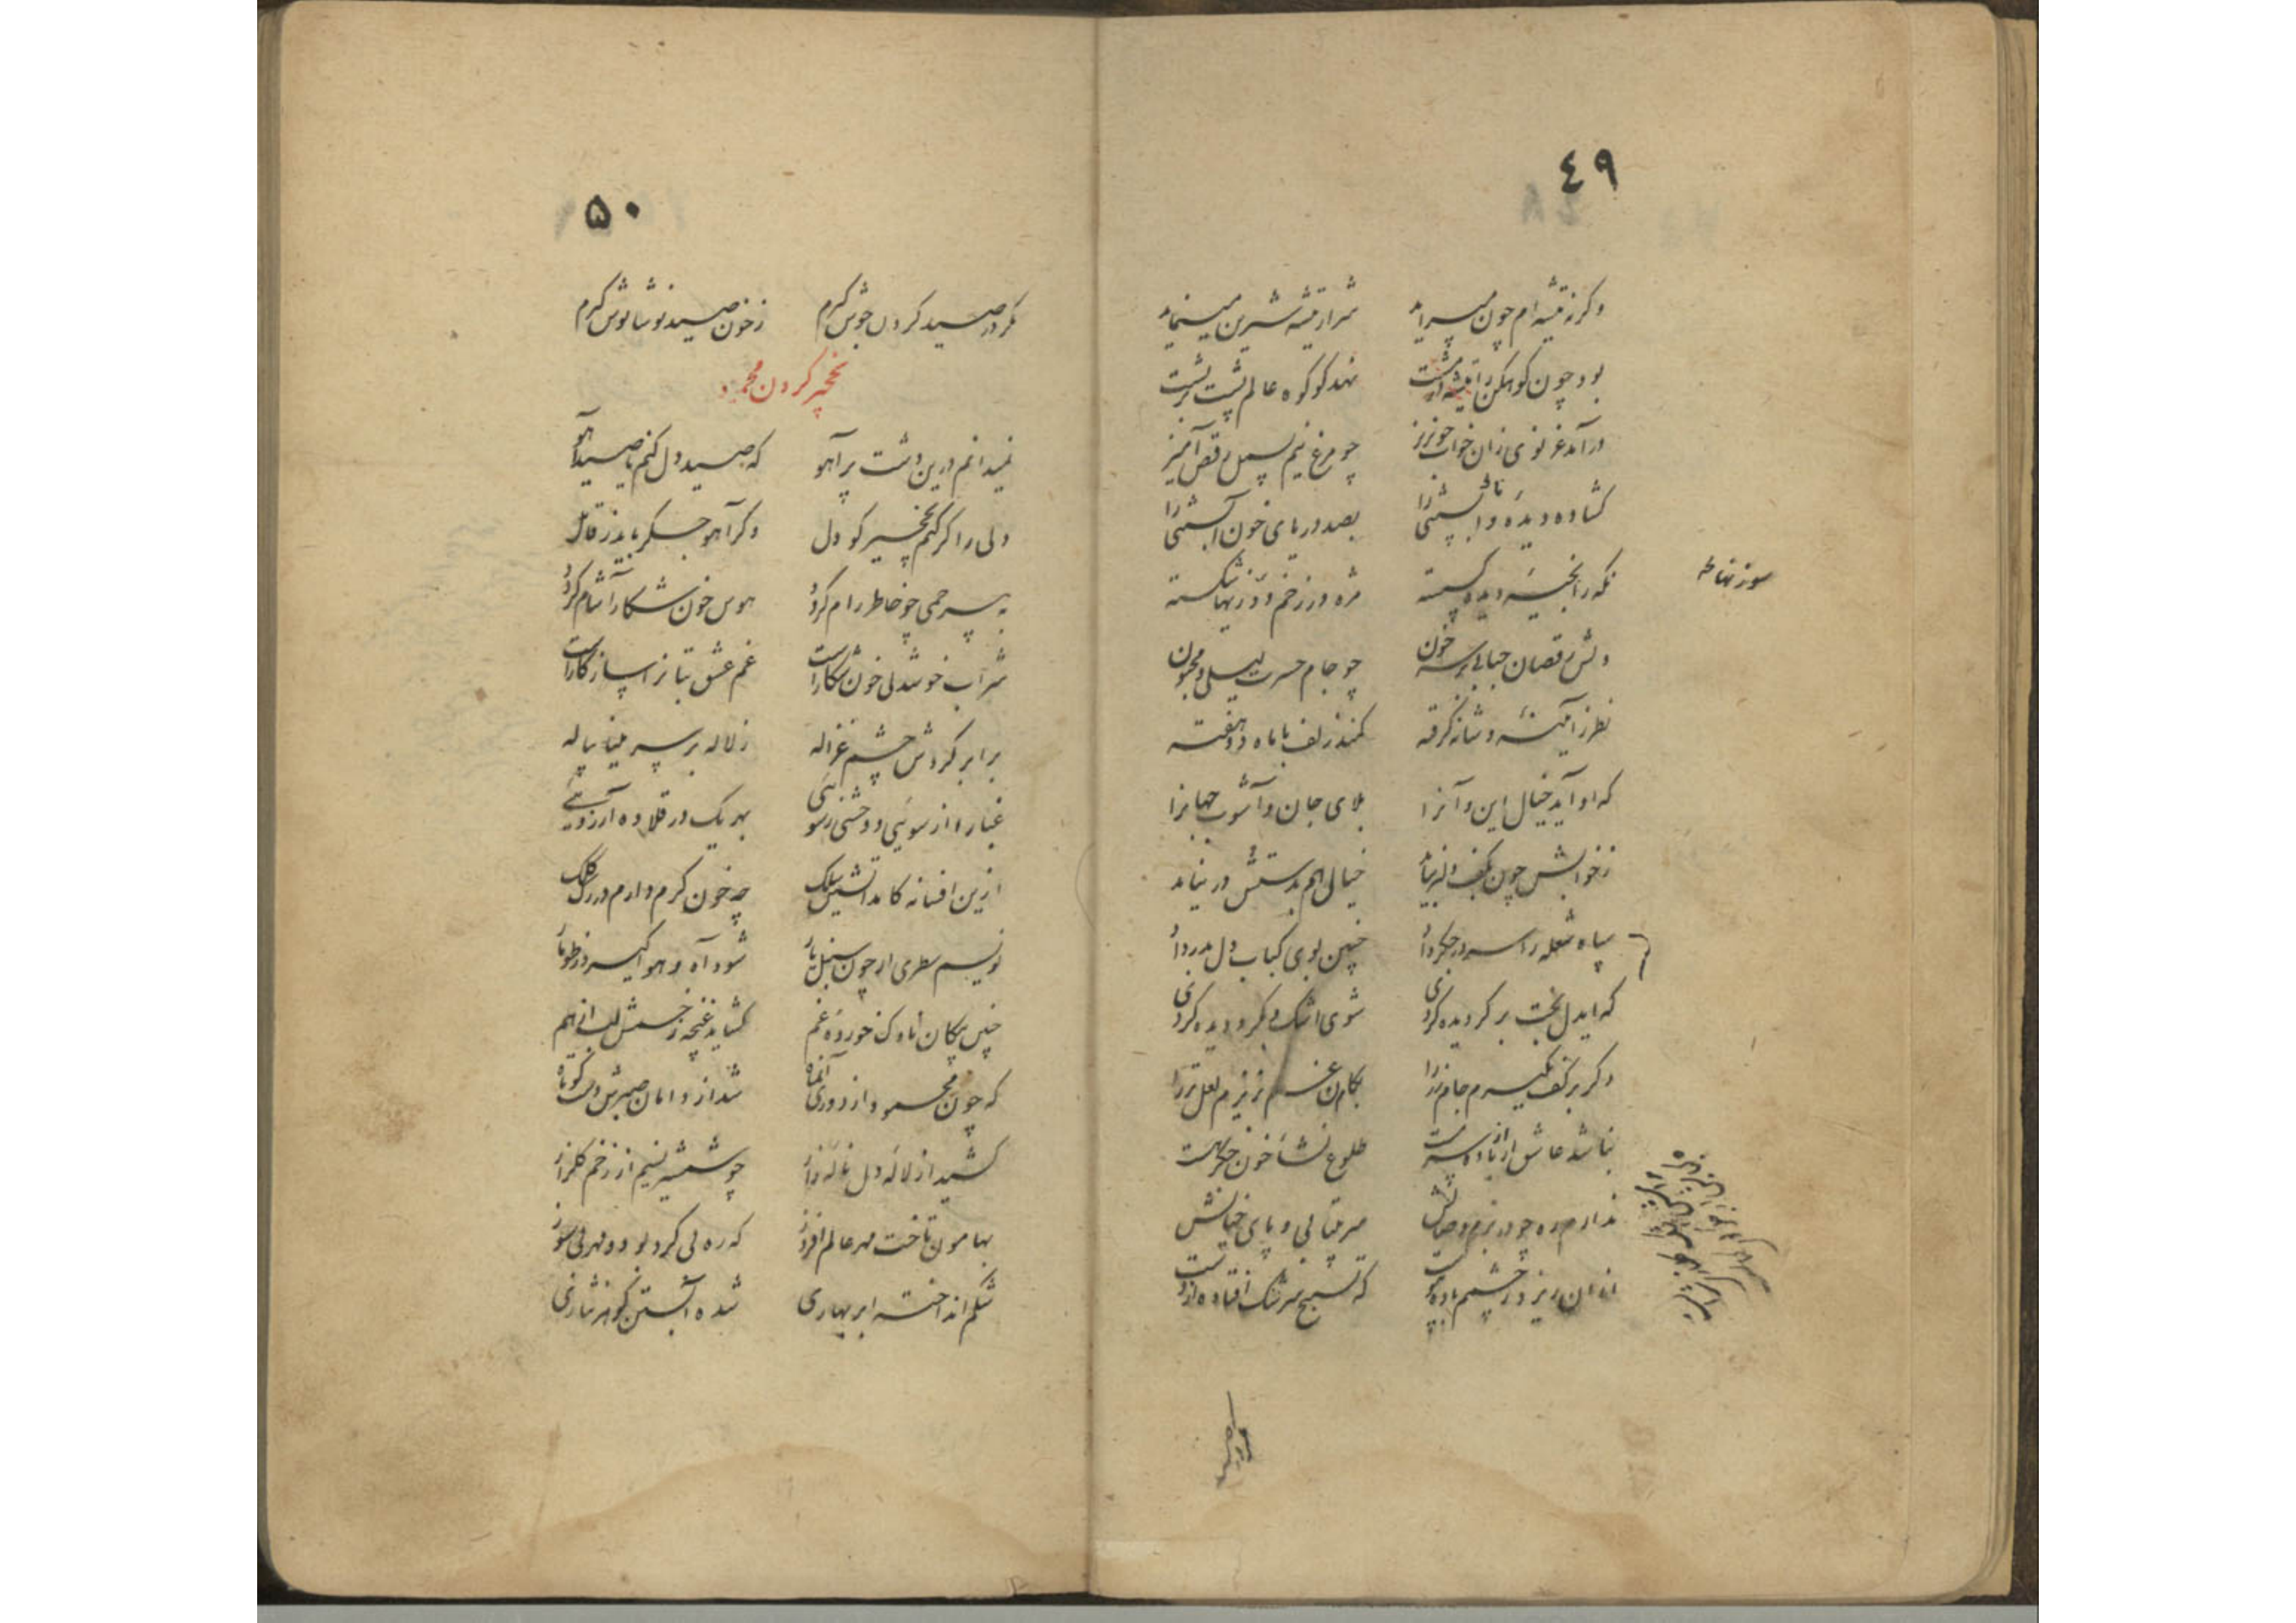 ٤٩
وکرنه تیشه ام چون میسراید شرار تیشه شیرین مینماید
بود چون کوهکن را تیشه در مشت نهد کو کوه عالم پشت بر پشت
درآمد غزنوی زان خواب خونریز چو مرغ نیم بسمل رقص آمیز
کشاده دیده بصد دریای خون
سوزنها
نکه را بخیه دیده مژه در زخم سوزنها شکسته
دلش رقصان حبابی بر سر خون چو جام حسرت لیلی و مجنون
نظر ز آیینه و شانه گرفته کمند زلف با ماه دو هفته
که او آید خیال این و آنرا بلای جان و آشوب جهانرا
ز خوابش چون بکف دلبر نیاید خیالی هم بدستش در نیاید
سپاه شعله را سر در جگر داد چنین بوی کباب دل بدر داد
که ایدل بخت بر کردیده کردی شوی اشک و بکرد دیده کردی
وکر بر کف بگیرم جام زر را بکام غم ریزم لعل تر را
نباشد عاشق از باده سرمست طلوع نشأ خون جگر هست
ندارم ره چو در بزم وصالش سر بیتابی و پای خیالش
ازان ریزد ز چشمم باده پیوست که تسبیح سرشک افتاده از دست
مکر در صید
۵۰
مکر در صید کردن جوش کیرم ز خون صید نوشانوش کیرم
نخجیر کردن محمود
نمیدانم درین دشت پر آهو که صید دل کنم یا صید آهو
دلی را کر کنم نخجیر کو دل وکر آهو جگر باید ز قاتل
به بیرحمی چو خاطر رام کردد هوس خون شکار آشام کردد
شراب خوشدلی خون شکار است غم عشق بتان را سازکار است
برابر کردش چشم غزاله ز لاله بر سر مینا پیاله
غبار از سوئی و وحشی ز سوئی بهر یک در قلاده آرزوئی
ازین افسانه کامد آتشین سلک چه خون کرم دارم در رک کلک
نویسم سطری ار چون سنبل یار شود آه و هوا کیرد ز طومار
چنین پیکان ناوک خورده غم کشاید غنچه زخمش لب از هم
که چون محمود از دوری آنماه شد از دامان صبرش دست کوتاه
کشید از لاله دل ناله زار چو شمشیر نسیم از زخم کلزار
بهامون تاخت مهر عالم افروز که ره لی کرد بود و مهر لی سوز
شکم انداخته ابر بهاری شده آبستن کوهر نثاری